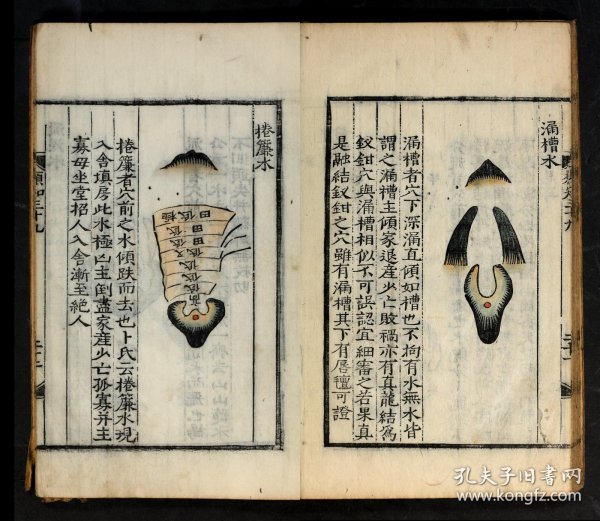 漏槽水
漏槽者穴下深漏直傾如槽也不拘有水無水皆
謂之漏槽主傾家退産少亡敗禍亦有真龍結爲
釵鉗穴與漏槽相似不可誤認宜細審之若果真
是融結釵鉗之穴雖有漏槽其下有唇氊可證
捲簾水
低極
田
低
田
低
田
低
低
捲簾者穴前之水傾跌而去也卜氏云捲簾水現
入舍填房此水極凶主倒盡家産少亡孤寡并主
寡母坐堂招人入舍漸至絶人
孔夫子旧书网
www.kongfz.com